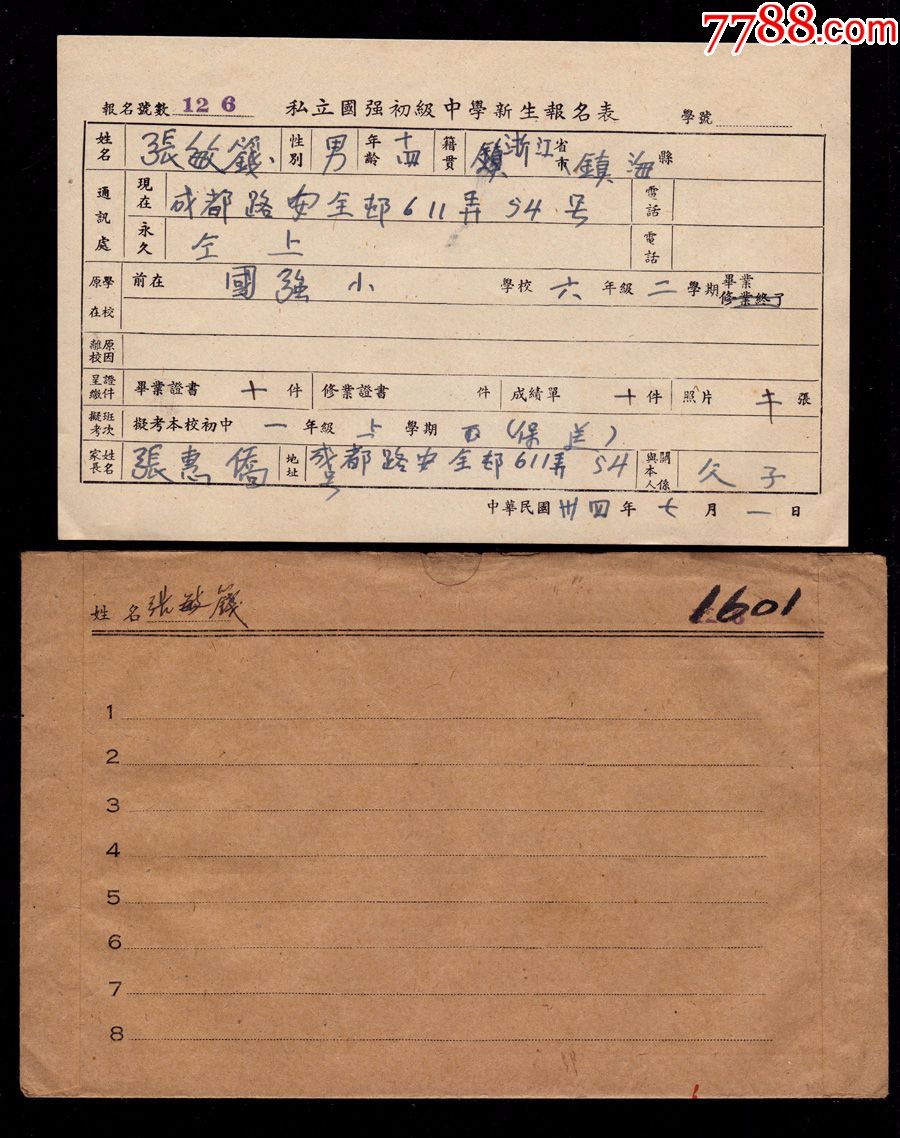 7788.com
報名號數 12 6 私立國强初級中學新生報名表 學號
姓名 張敏籛 性別 男 年齡 十四 籍貫 鎮 浙江 省市 鎮海 縣
通訊處 現在 成都路安全邨611弄54号 電話
永久 仝上 電話
原在學校 前在 國强小 學校 六 年級 二 學期 畢業 修業終了
離校原因
呈繳證件 畢業證書 十 件 修業證書 件 成績單 十 件 照片 张
擬考班次 擬考本校初中 一 年級 上 學期 (保送)
家長姓名 張惠僑 地址 成都路安全邨611弄54号 與本人關係 父子
中華民國 卅四 年 七 月 一 日
姓名 張敏籛 1601
1
2
3
4
5
6
7
8